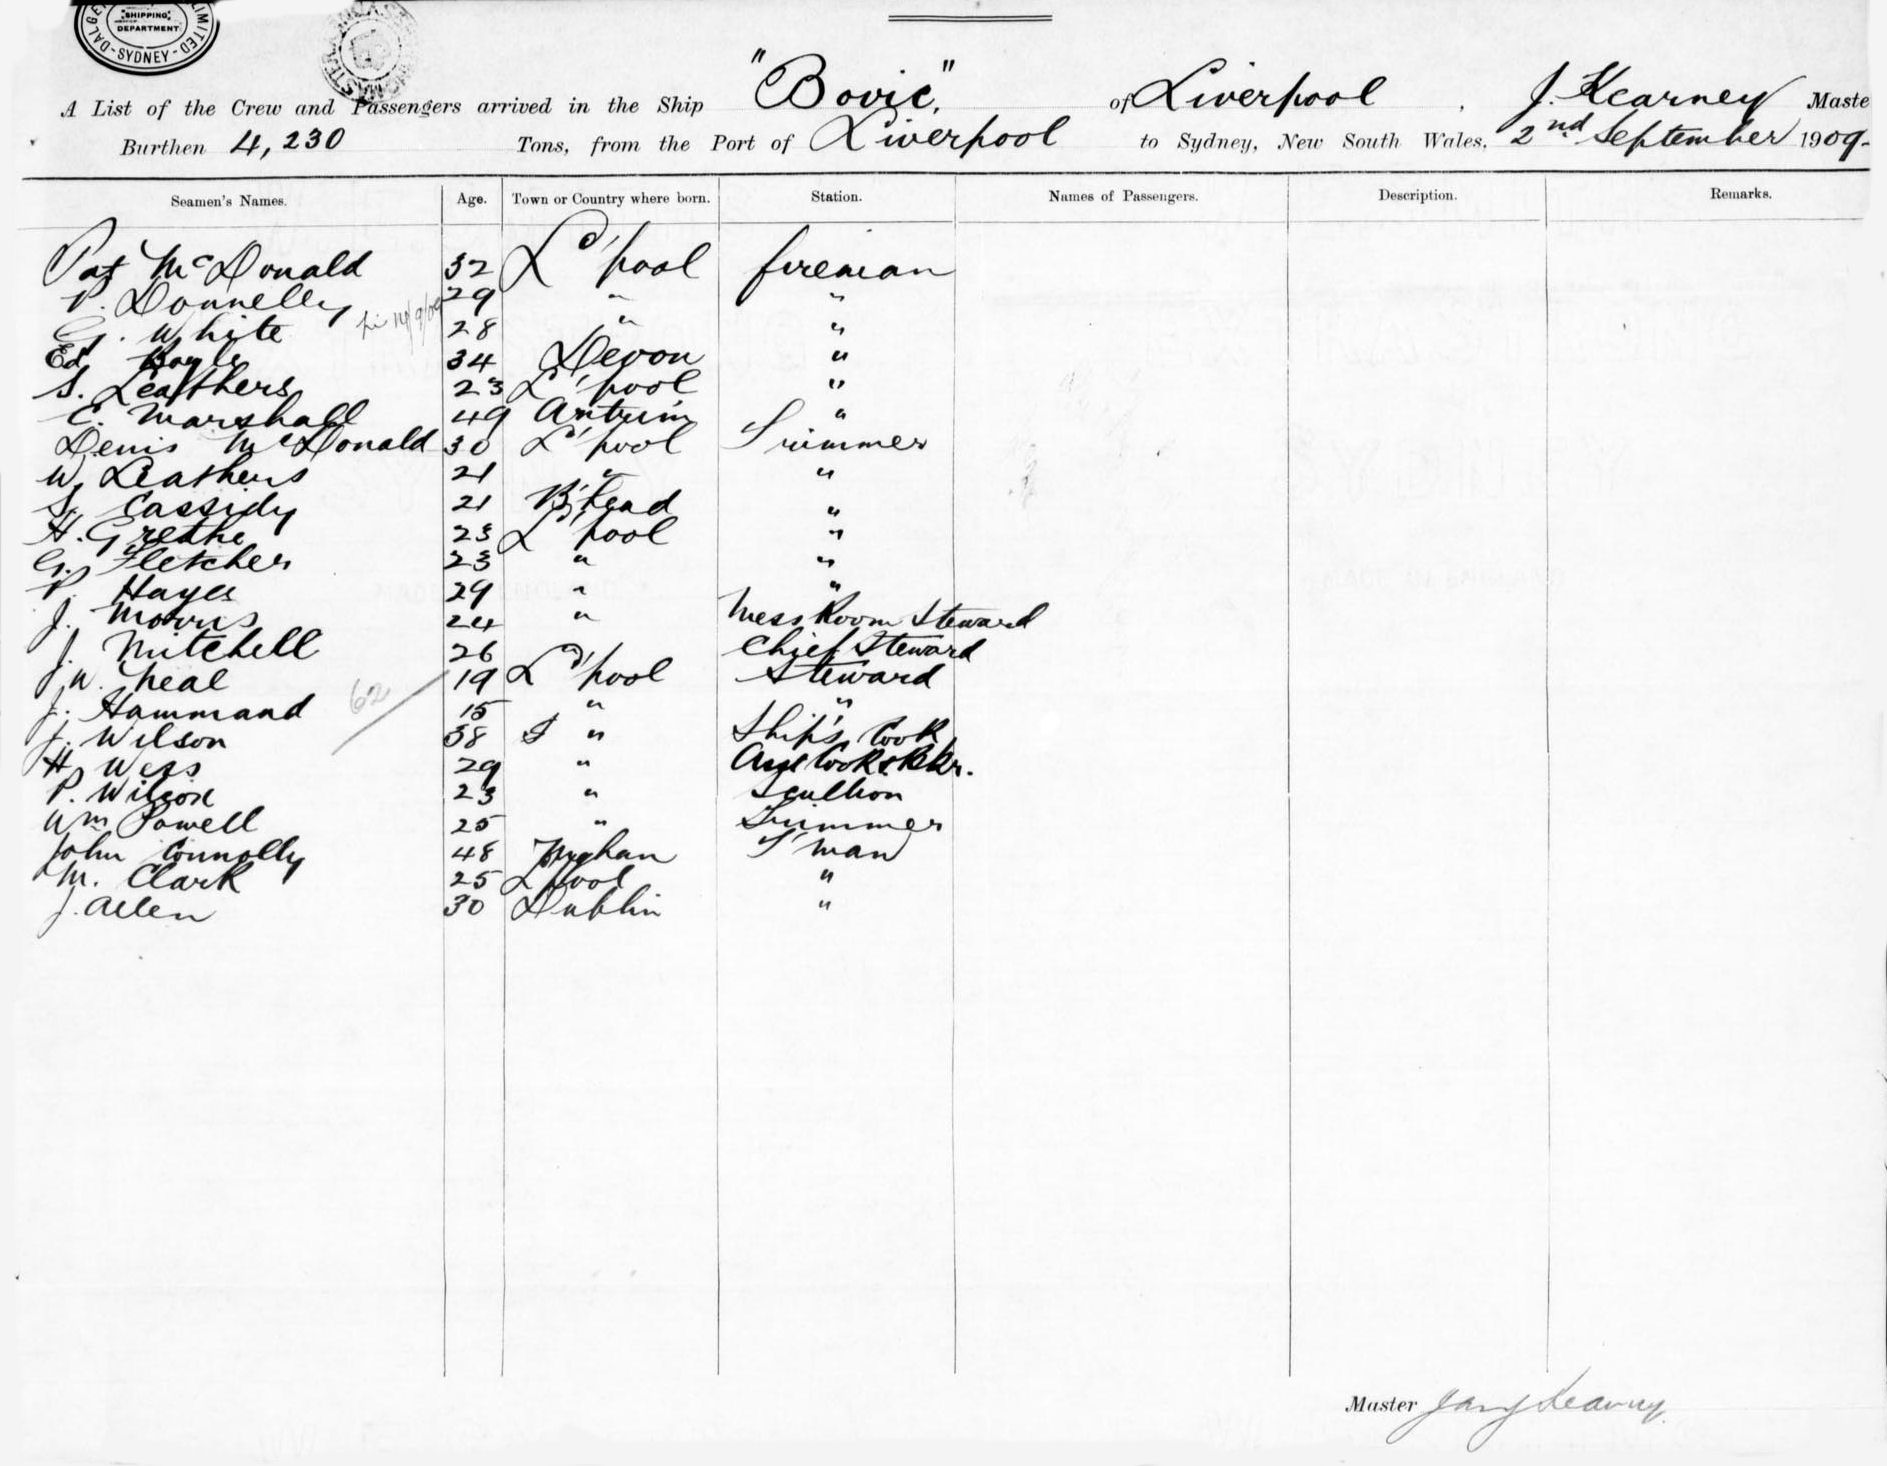 SHIPPING DEPARTMENT
LIMITED
SYDNEY
A List of the Crew and Passengers arrived in the Ship "Bovic", of Liverpool, J. Kearney Maste
Burthen 4,230 Tons, from the Port of Liverpool to Sydney, New South Wales, 2nd September 1909.
Seamen's Names. Age. Town or Country where born. Station. Names of Passengers. Description. Remarks.
Pat McDonald 32 L'pool fireman
P. Donnelly 29 " "
G. White 28 " "
Ed 34 Devon "
S. Leathers 23 L'pool "
E. Marshall 49 Antrim "
Denis McDonald 30 L'pool Trimmer
W. Leathers 21 " "
S. Cassidy 21 B'head "
H. Grethe 23 L'pool "
G. Fletcher 23 " "
P. Hayes 29 " "
J. Morris 24 " Mess Room Steward
J. Mitchell 26 Chief Steward
J. W. Neal 19 L'pool Steward
62
J. Hammand 15 " "
J. Wilson 38 S " Ship's Cook
H. Wess 29 "
P. Wilson 23 " Scullion
Wm Powell 25 " Trimmer
John Connolly 48 F'man
M. Clark 25 L'pool "
J. Allen 30 Dublin "
Master Kearney